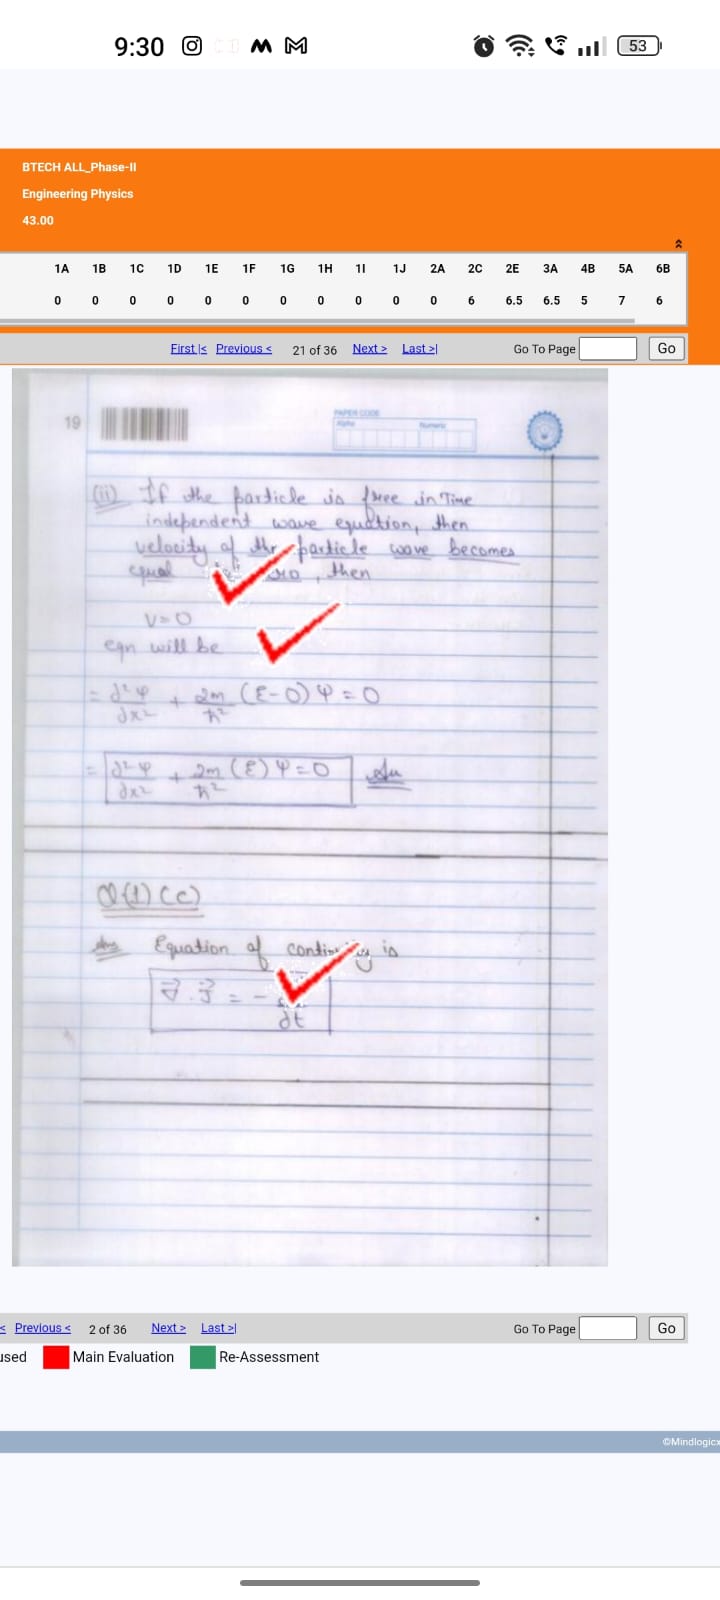 9:30
53
BTECH ALL_Phase-II
Engineering Physics
43.00
1A 1B 1C 1D 1E 1F 1G 1H 1I 1J 2A 2C 2E 3A 4B 5A 6B
0 0 0 0 0 0 0 0 0 0 0 6 6.5 6.5 5 7 6
First |< Previous < 21 of 36 Next > Last >| Go To Page Go
19
PAPER CODE
Alpha Numeric
(ii) If the particle is free in Time
independent wave equation, then
velocity of the particle wave becomes
equal then
V=0
eqn will be
= ∂²φ/∂x² + 2m/ħ² (E-0) φ = 0
= ∂²φ/∂x² + 2m/ħ² (E) φ = 0 Ans
Q(1) (c)
Ans Equation of continuity is
∇⃗ . J⃗ = - /∂t
< Previous < 2 of 36 Next > Last >| Go To Page Go
used Main Evaluation Re-Assessment
©Mindlogicx